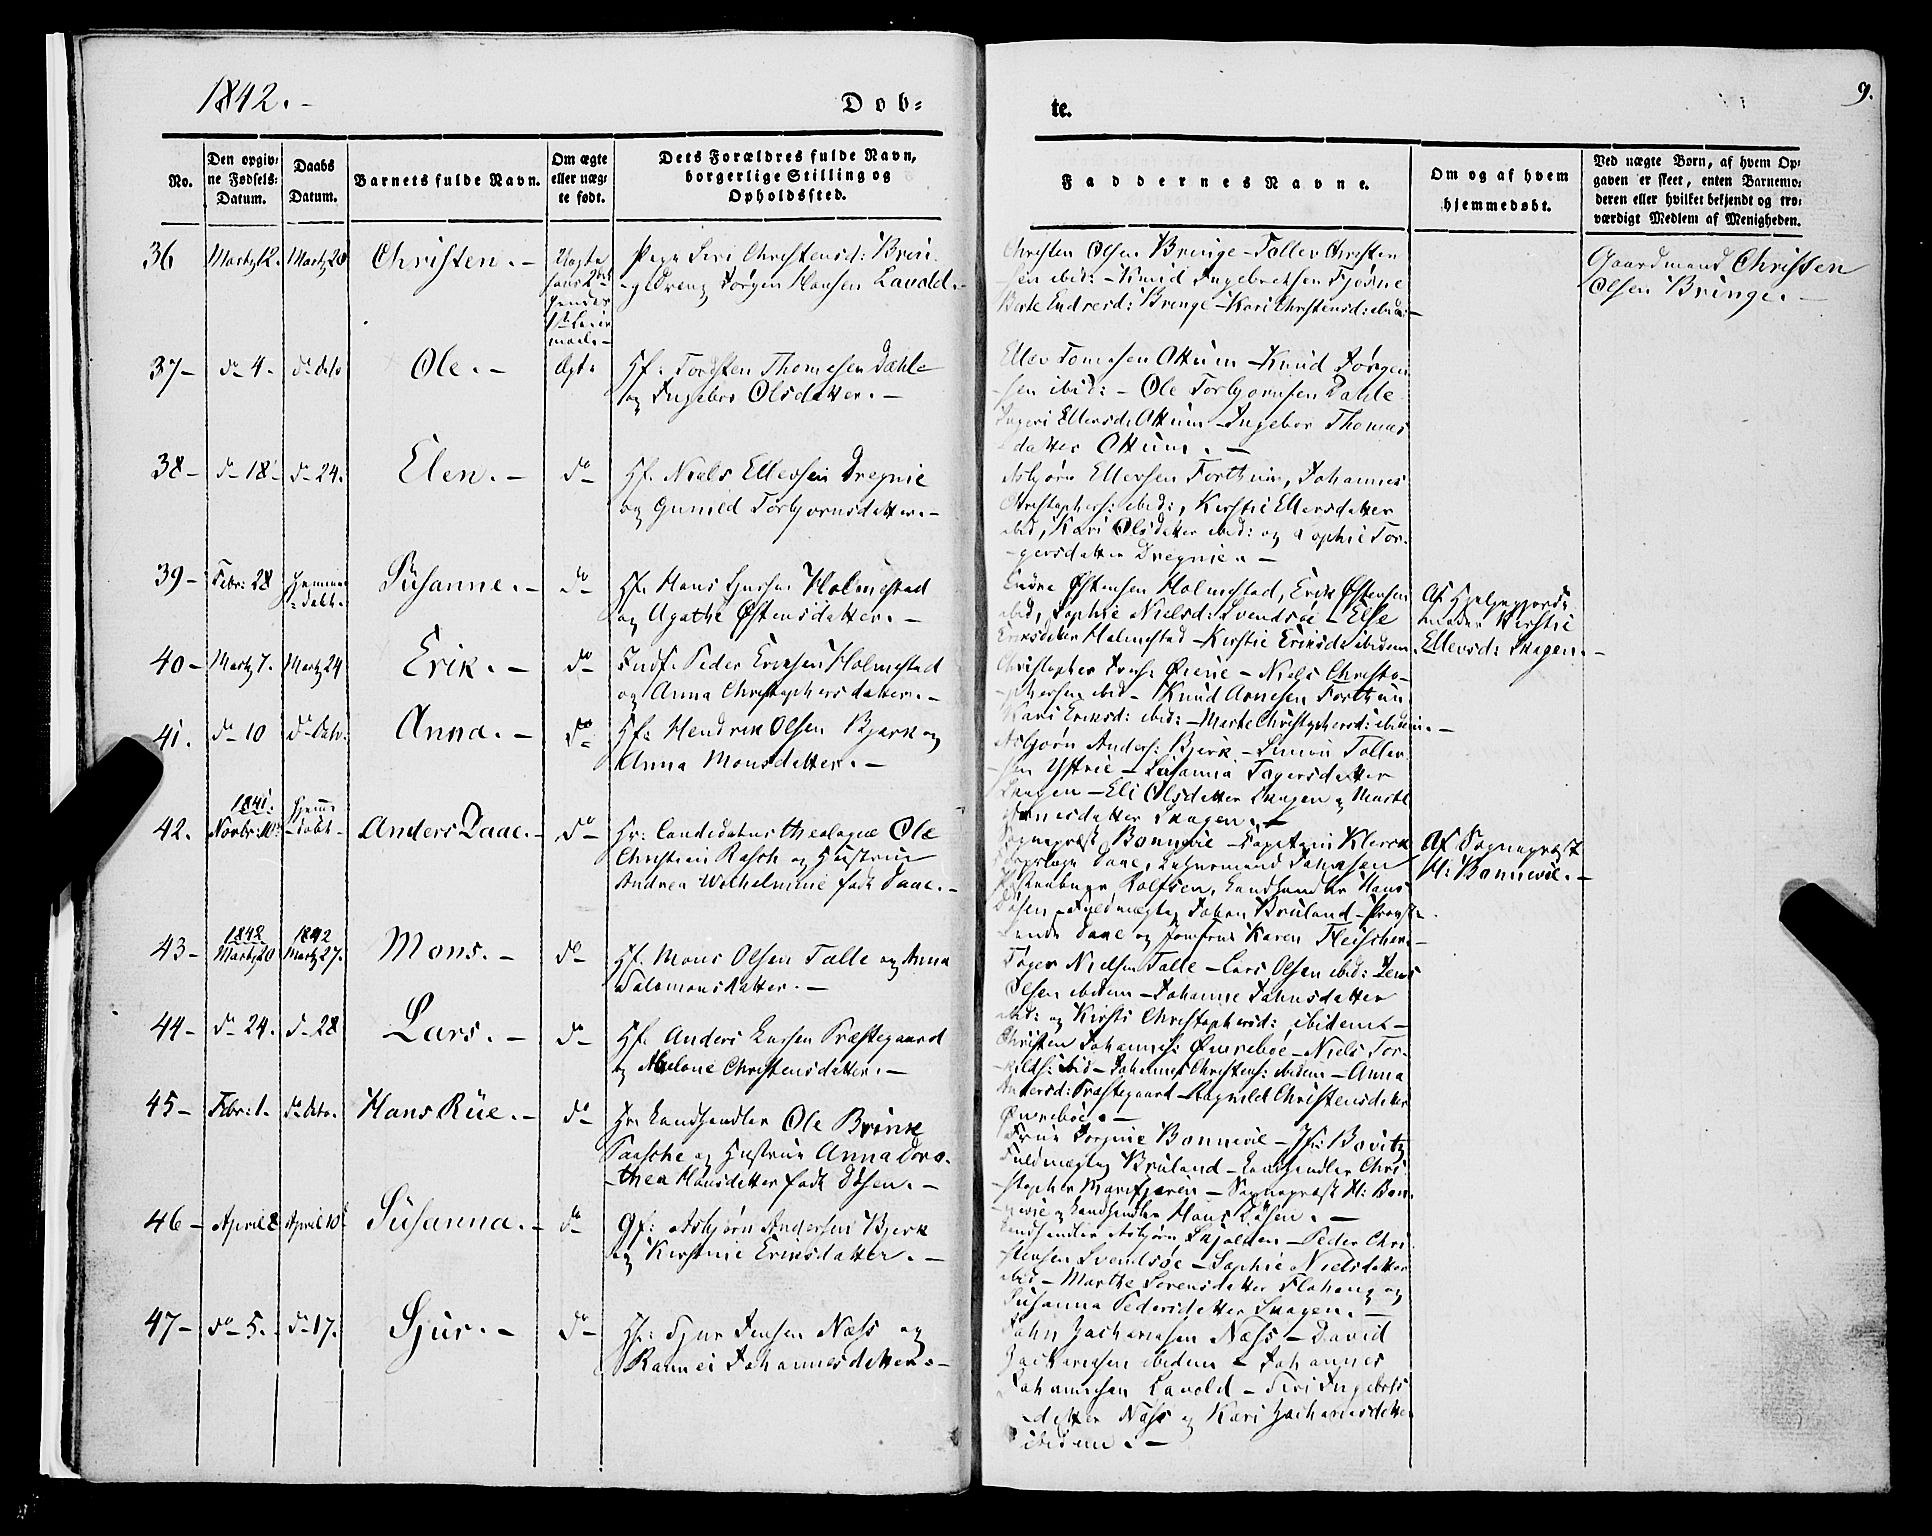 1842. -
Dob-
te.
9.
No.
Den opgiv-
ne Fødsels-
Datum.
Daabs
Datum.
Barnets fulde Navn.
Om ægte
eller uæg-
te født.
Dets Forældres fulde Navn,
borgerlige Stilling og
Opholdssted.
Faddernes Navne.
Om og af hvem
hjemmedøbt.
Ved uægte Børn, af hvem Op-
gaven er skeet, enten Barnemo-
deren eller hvilket bekjendt og tro-
værdigt Medlem af Menigheden.
36
Marts 12.
Marts 20
Christen. -
Uægte
Pige Siri Christensd: Brin-
Jørgen Hansen Lavold. -
Christen Olsen Bringe - Toller Christen
sen ibid: - Knud Ingebretsen Fjøsne
Endresd: Bringe - Kari Christensd: ibid: -
Gaardmand Christen
Olsen Bringe. -
37 -
do 4.
do dito
Ole. -
Ægte
Hf: Torsten Thomesen Dahle
og Ingebor Olsdatter. -
Eller Tomesen Ottum - Knud Jørgen
sen ibid: - Ole Torbjørnsen Dahle
Ingeri Ellersd: Ottum - Ingebor Thomas
datter Ottum. -
38 -
do 18 -
do 24.
Elen. -
do
Hf. Niels Ellersen Dregnie
og Gunild Torbjørnsdatter. -
Asbjørn Ellersen Forthun, Johannes
Christophers: ibid:, Kirstie Ellersdatter
ibid, Kari Olsdatter ibid: og Sophie Tor-
gersdatter Dregnie. -
39 -
Febr: 28
Hjemme
døbt.
Susanne. -
do
Hf. Hans Holmestad
og Agathe Østensdatter. -
Endre Østensen Holmestad, Erik Østensen
ibid, Sophie Nielsd: Svendsøe - Else
Eriksdatter Holmestad - Kirstie Eriksd: ibidem.
Af Hjelpegjorde
moder Kirstie
Ellersd: Skagen. -
40 -
Marts 7.
Marts 24
Erik. -
do
Indf. Peder Eriksen Holmestad
og Anna Christophersdatter. -
Christopher Øiene - Niels Christo-
phersen ibid - Knud Arnesen Forthun
Kari Eriksd: ibid: - Marte Christophersd: ibidem. -
41.
do 10
do dito.
Anna. -
do
Hf: Hendrik Olsen Bjerk og
Anna Monsdatter. -
Asbjørn Anders: Bjerk - Simon Toller
sen Ystrie - Susanna Togersdatter
Skagen - Eli Olsdatter Skagen og Marte
Skagen. -
42.
1841.
Novbr: 10
Hjemme
døbt -
Anders Daae. -
do
Hr: Candidatus theologiæ Ole
Christian Rasch og Hustrue
Andrea Wilhelmine født Daae. -
Sognepræst Bonnevie - Capitain Klerck
Daae, Johnsen
Rolfsen, Landhandler Hans
Døsen, Fuldmægtig Johan Bruland - Provst-
inde Daae og Jomfrue Karen Fleischer. -
Af Sognepræst
H: Bonnevie. -
43 -
1842
Marts 20
1842
Marts 27.
Mons. -
do
Hf. Mons Olsen Talle og Anna
Salomonsdatter. -
Toger Nielsen Talle - Lars Olsen ibid: Jens
Olsen ibidem - Johanne Johnsdatter
ibid: og Kirsti Christophersd: ibidem -
44 -
do 24.
do 28
Lars. -
do
Hf. Anders Larsen Præstegaard
og Malene Christensdatter. -
Christen Johannes: Øureboe - Niels Tor-
kilds: ibid - Johannes Christens: ibidem - Anna
Andersd: Præstegaard - Ragnild Christensdatter
Øureboe. -
45 -
Febr: 1.
do dito.
Hans Rüe. -
do
Hr. Landhandler Ole Brink
Paasche og Hustrue Anna Doro-
thea Hansdatter født Døsen. -
Frue Jorgine Bonnevie - Bovitz
Fuldmægtig Bruland - Landhandler Chri
stopher Marifjæren - Sognepræst H: Bon-
nevie og Landhandler Hans Døsen. -
46 -
April 2
April 10
Susanna. -
do
Gf: Asbjørn Andersen Bjerk
og Kirstine Eriksdatter. -
Landhandler Asbjørn Skjolden - Peder Chri
stensen Svendsøe - Sophie Nielsdatter
ibid - Marthe Sørensdatter Flohaug og
Susanna Pedersdatter Skagen. -
47 -
do 5.
do 17.
Sjur. -
do
Hf: Sjur Jensen Næss og
Rannei Johannesdatter. -
John Zachariasen Næss - David
Zachariasen ibidem - Johannes
Johannesen Lavold - Siri Ingebrits
datter Næss og Kari Zachariasdatter
ibidem. -